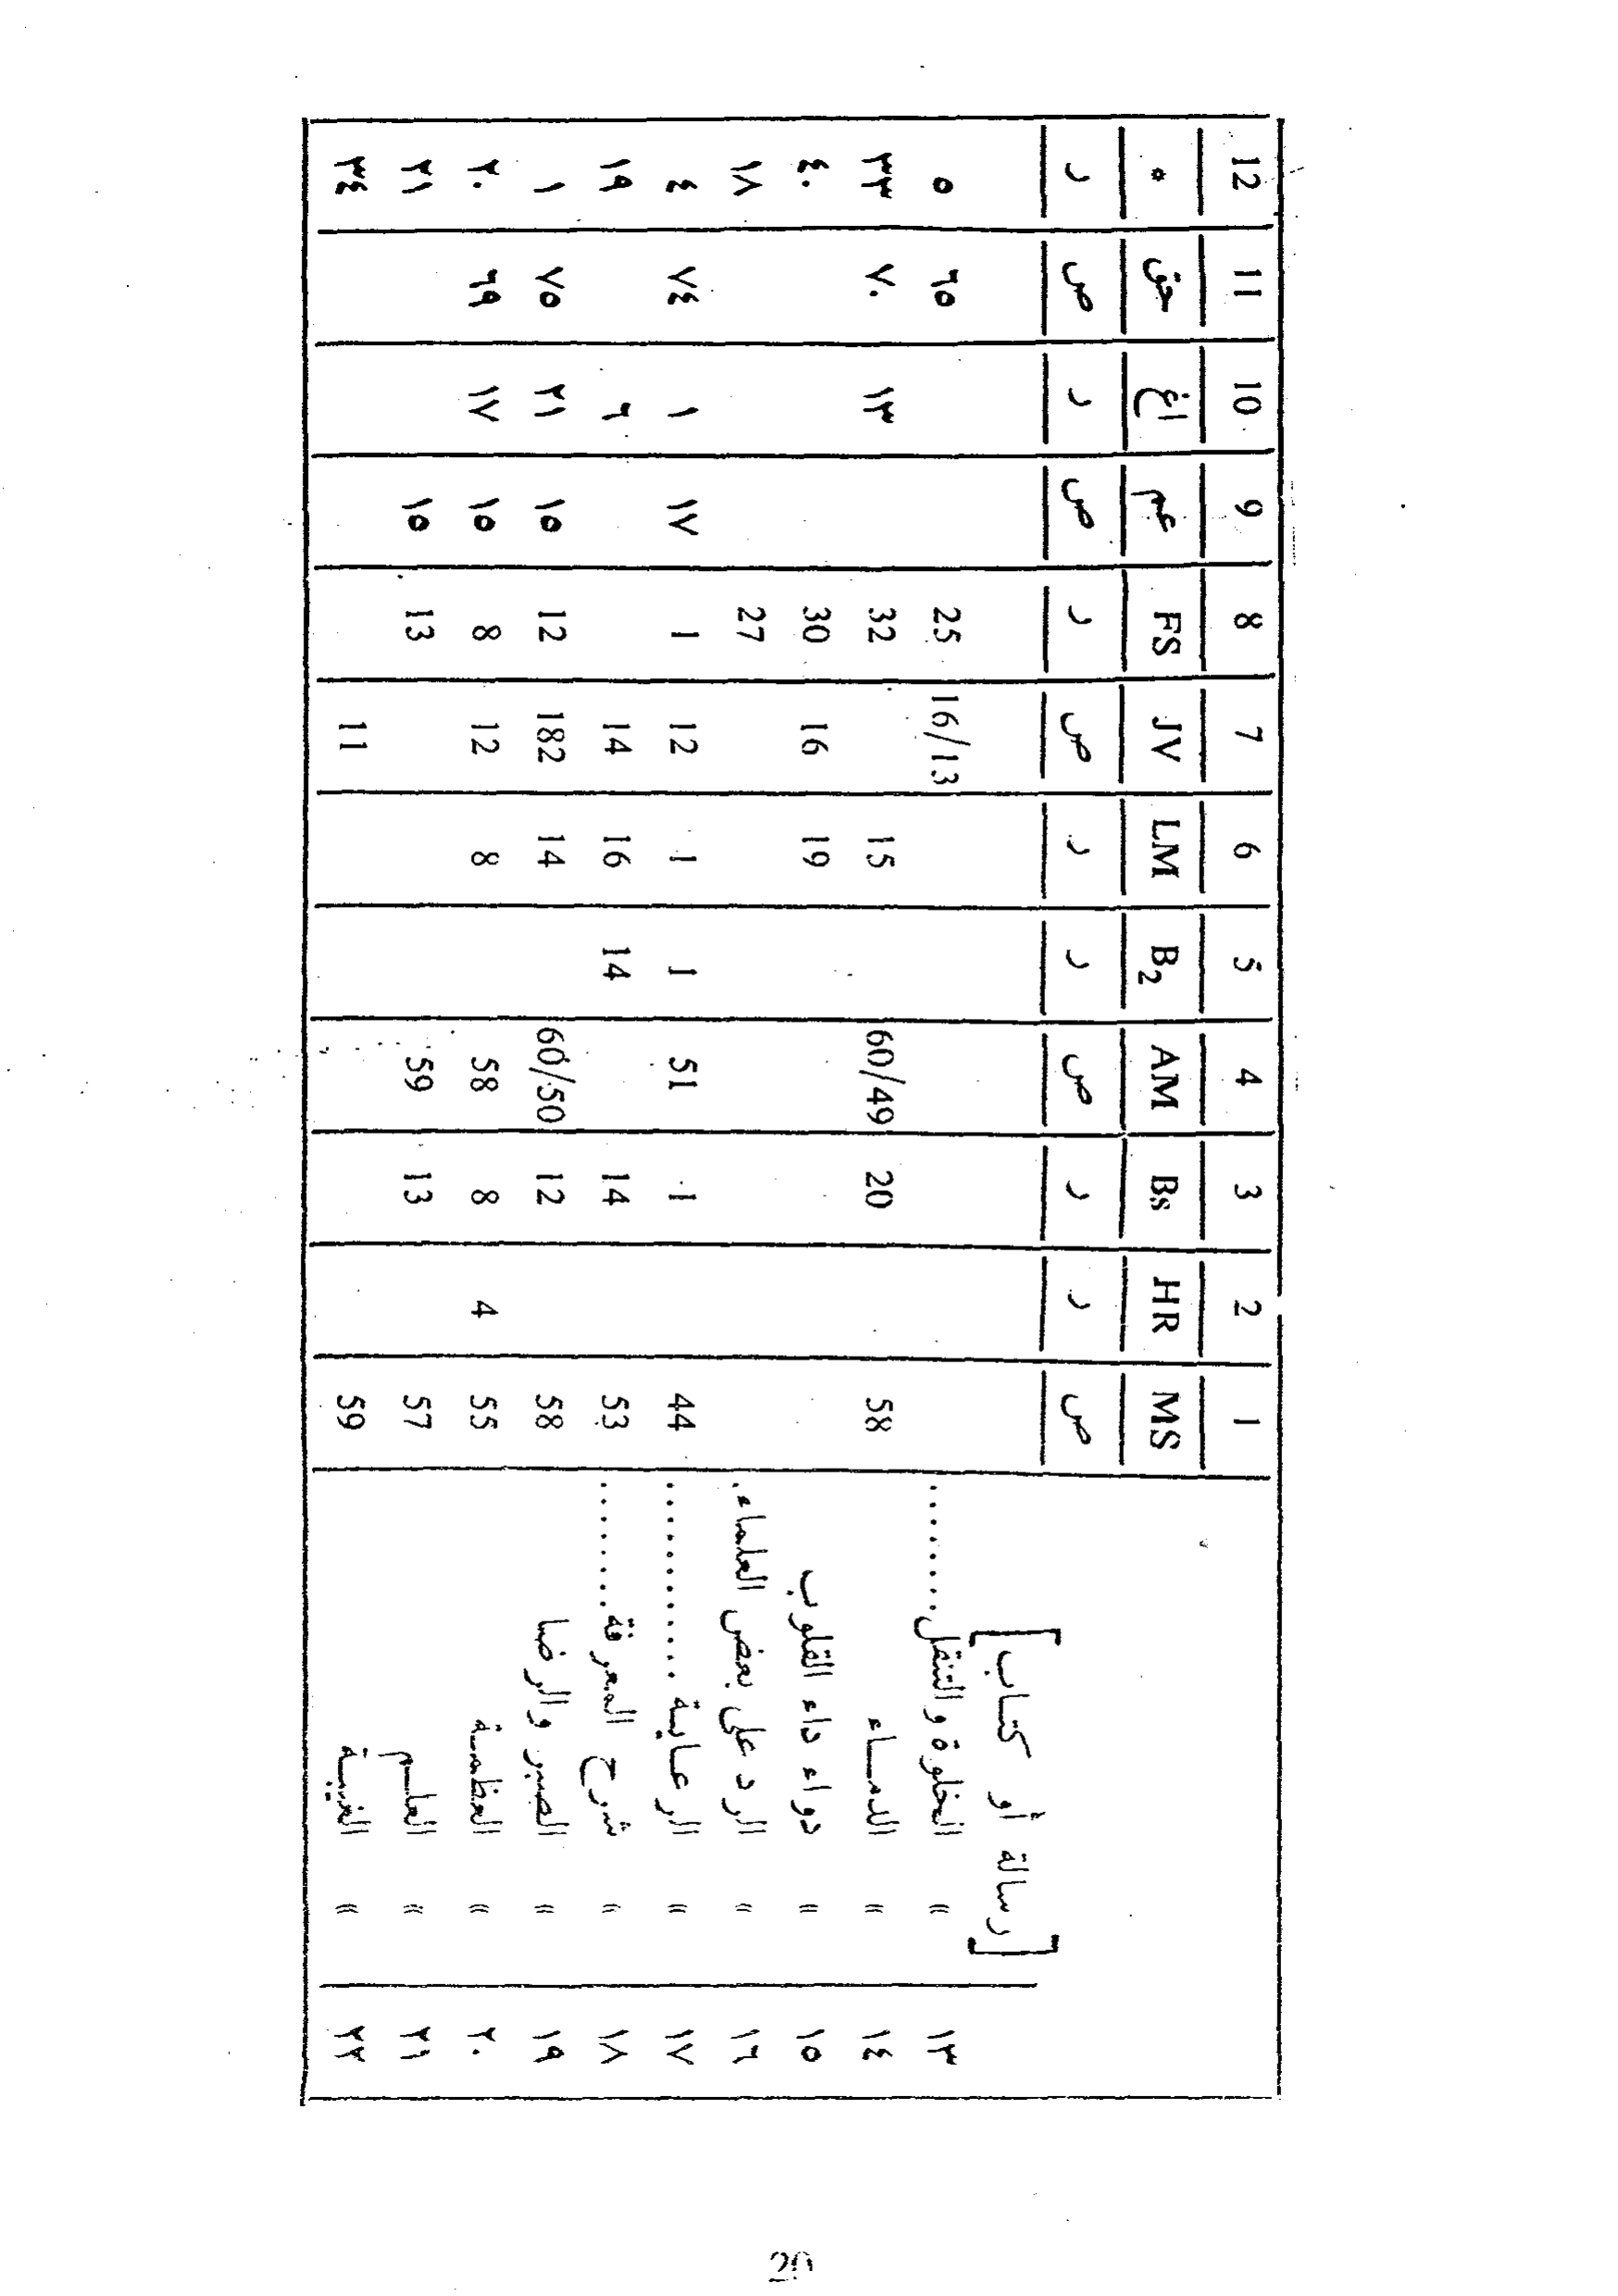 1 2 3 4 5 6 7 8 9 10 11 12
MS HR Bs AM B2 LM JV FS عم اغ حق *
ص ر ر ص ر ر ص ر ص ر ص ر
[رسالة أو كتاب]
١٣ " الخلوة والتنقل........ 16/13 25 ٦٥ ٥
١٤ " الدمـاء 58 20 60/49 15 32 ١٣ ٧٠ ٣٣
١٥ " دواء داء القلوب 19 16 30 ٤٠
١٦ " الرد على بعض العلماء. 27 ١٨
١٧ " الرعـايـة ............ 44 1 51 1 1 12 1 ١٧ ١ ٧٤ ٤
١٨ " شرح المعرفة........ 53 14 14 16 14 ٦ ١٩
١٩ " الصبر والرضا 58 12 60/50 14 182 12 ١٥ ٢١ ٧٥ ١
٢٠ " العظمـة 55 4 8 58 8 12 8 ١٥ ١٧ ٦٩ ٢٠
٢١ " العلـم 57 13 59 13 ١٥ ٢١
٢٢ " الغيبـة 59 11 ٣٤
20